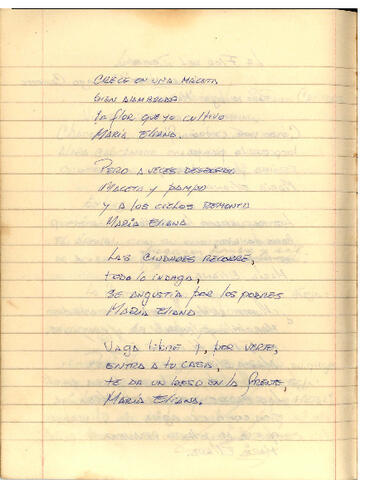 CRECE EN UNA MACETA
BIEN ALAMBRADA
LA FLOR QUE YO CULTIVO
MARÍA ELIANA.
PERO A VECES DESBORDA
MACETA Y PAMPA
Y A LOS CIELOS REMONTA
MARÍA ELIANA
LAS CIUDADES RECORRE,
TODO LO INDAGA,
SE ANGUSTIA POR LOS POBRES
MARÍA ELIANA
VAGA LIBRE Y, POR VERTE,
ENTRA A TU CASA,
TE DA UN BESO EN LA FRENTE,
MARÍA ELIANA.